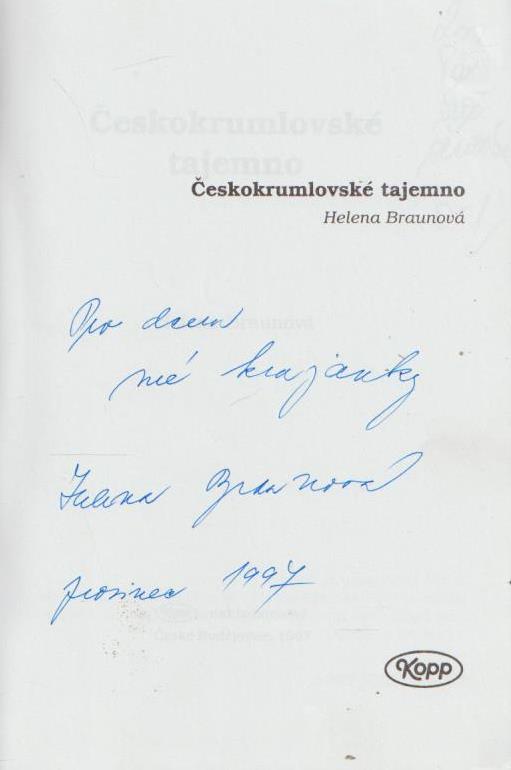 Českokrumlovské tajemno
Helena Braunová
Pro dceru
mé krajanky
Helena Braunová
prosinec 1997
Kopp